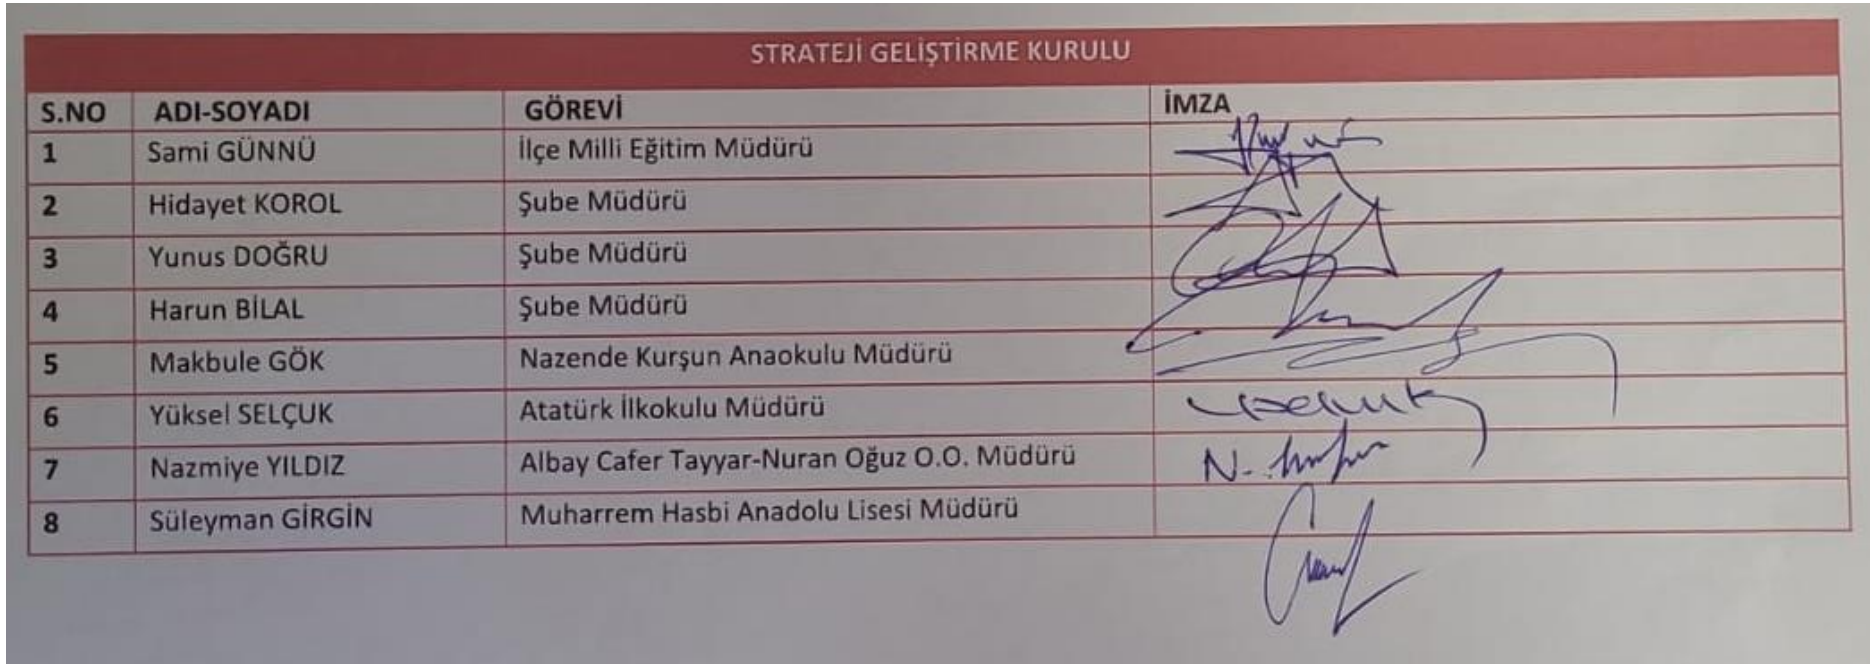 STRATEJİ GELİŞTİRME KURULU
S.NO ADI-SOYADI GÖREVİ İMZA
1 Sami GÜNNÜ İlçe Milli Eğitim Müdürü
2 Hidayet KOROL Şube Müdürü
3 Yunus DOĞRU Şube Müdürü
4 Harun BİLAL Şube Müdürü
5 Makbule GÖK Nazende Kurşun Anaokulu Müdürü
6 Yüksel SELÇUK Atatürk İlkokulu Müdürü
7 Nazmiye YILDIZ Albay Cafer Tayyar-Nuran Oğuz O.O. Müdürü
8 Süleyman GİRGİN Muharrem Hasbi Anadolu Lisesi Müdürü